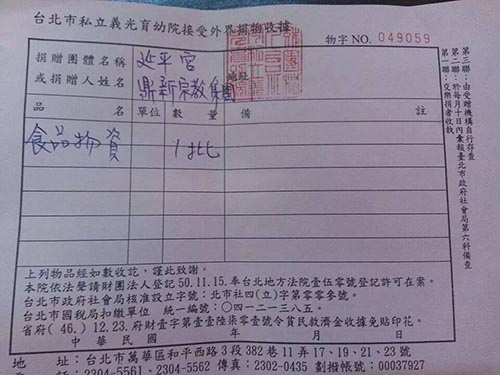 台北市私立義光育幼院接受外界捐物收據
物字 NO. 049059
捐贈團體名稱 延平宮
或捐贈人姓名 鼎新宗教集團 地址
品 名 單位 數 量 備 註
食品物資 1批
上列物品經如數收訖,謹此致謝。
本院依法聲請財團法人登記 50.11.15.奉台北地方法院壹伍零號登記許可在案。
台北市政府社會局核准設立字號:北市社四(立)字第零零參號。
台北市國稅局扣繳單位 統一編號:○四一二一三八五。
省府(46.)12.23.府財壹字第壹壹陸柒零壹號令貧民救濟金收據免貼印花。
中 華 民 國 年 月 日
地 址:台北市萬華區和平西路3段382巷11弄17、19、21、23號
電 話:2304-5561、2304-5562 傳真:2302-0435 劃撥帳號:00037927
第一聯:交樂捐者收執
第二聯:於每月十日內彙報臺北市政府社會局第六科備查
第三聯:由受贈機構自行存查